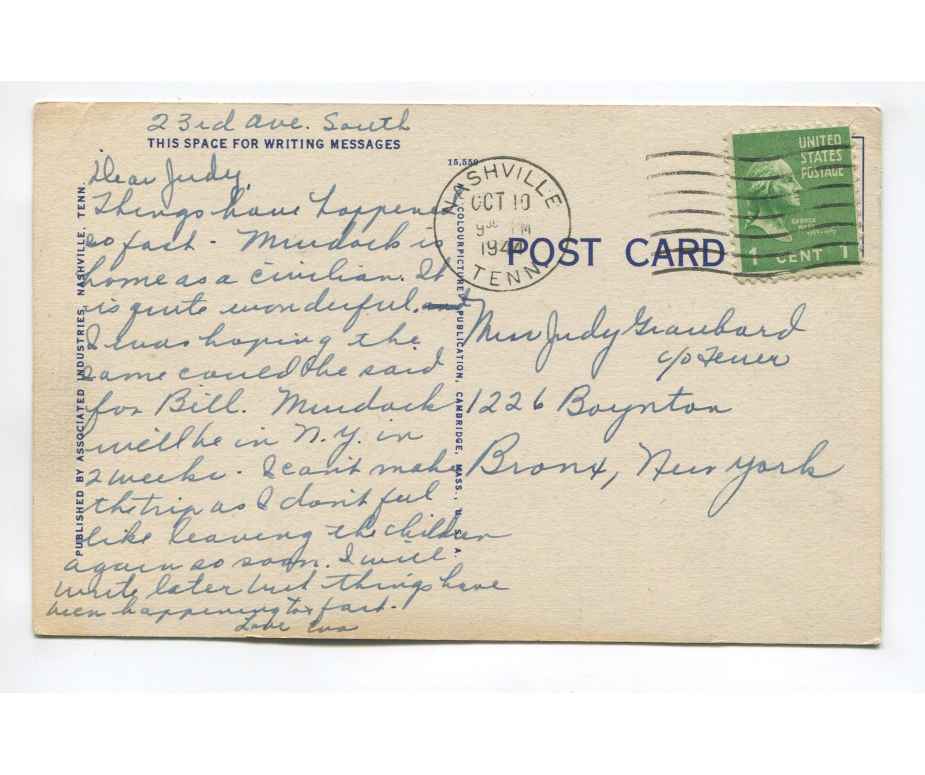 23rd Ave. South
THIS SPACE FOR WRITING MESSAGES
Dear Judy,
Things have happened
so fast - Murdock is
home as a civilian. It
is quite wonderful. and
I was hoping the
same could be said
for Bill. Murdock
will be in N.Y. in
2 weeks - I can't make
the trip as I don't feel
like leaving the children
again so soon. I will
write later but things have
been happening too fast.
Love Eva
PUBLISHED BY ASSOCIATED INDUSTRIES, NASHVILLE, TENN.
15,550
COLOURPICTURE PUBLICATION, CAMBRIDGE, MASS., U.S.A.
NASHVILLE
OCT 10
PM
TENN
POST CARD
UNITED
STATES
POSTAGE
1 CENT 1
Miss Judy Graubard
c/o Feuer
1226 Boynton
Bronx, New York